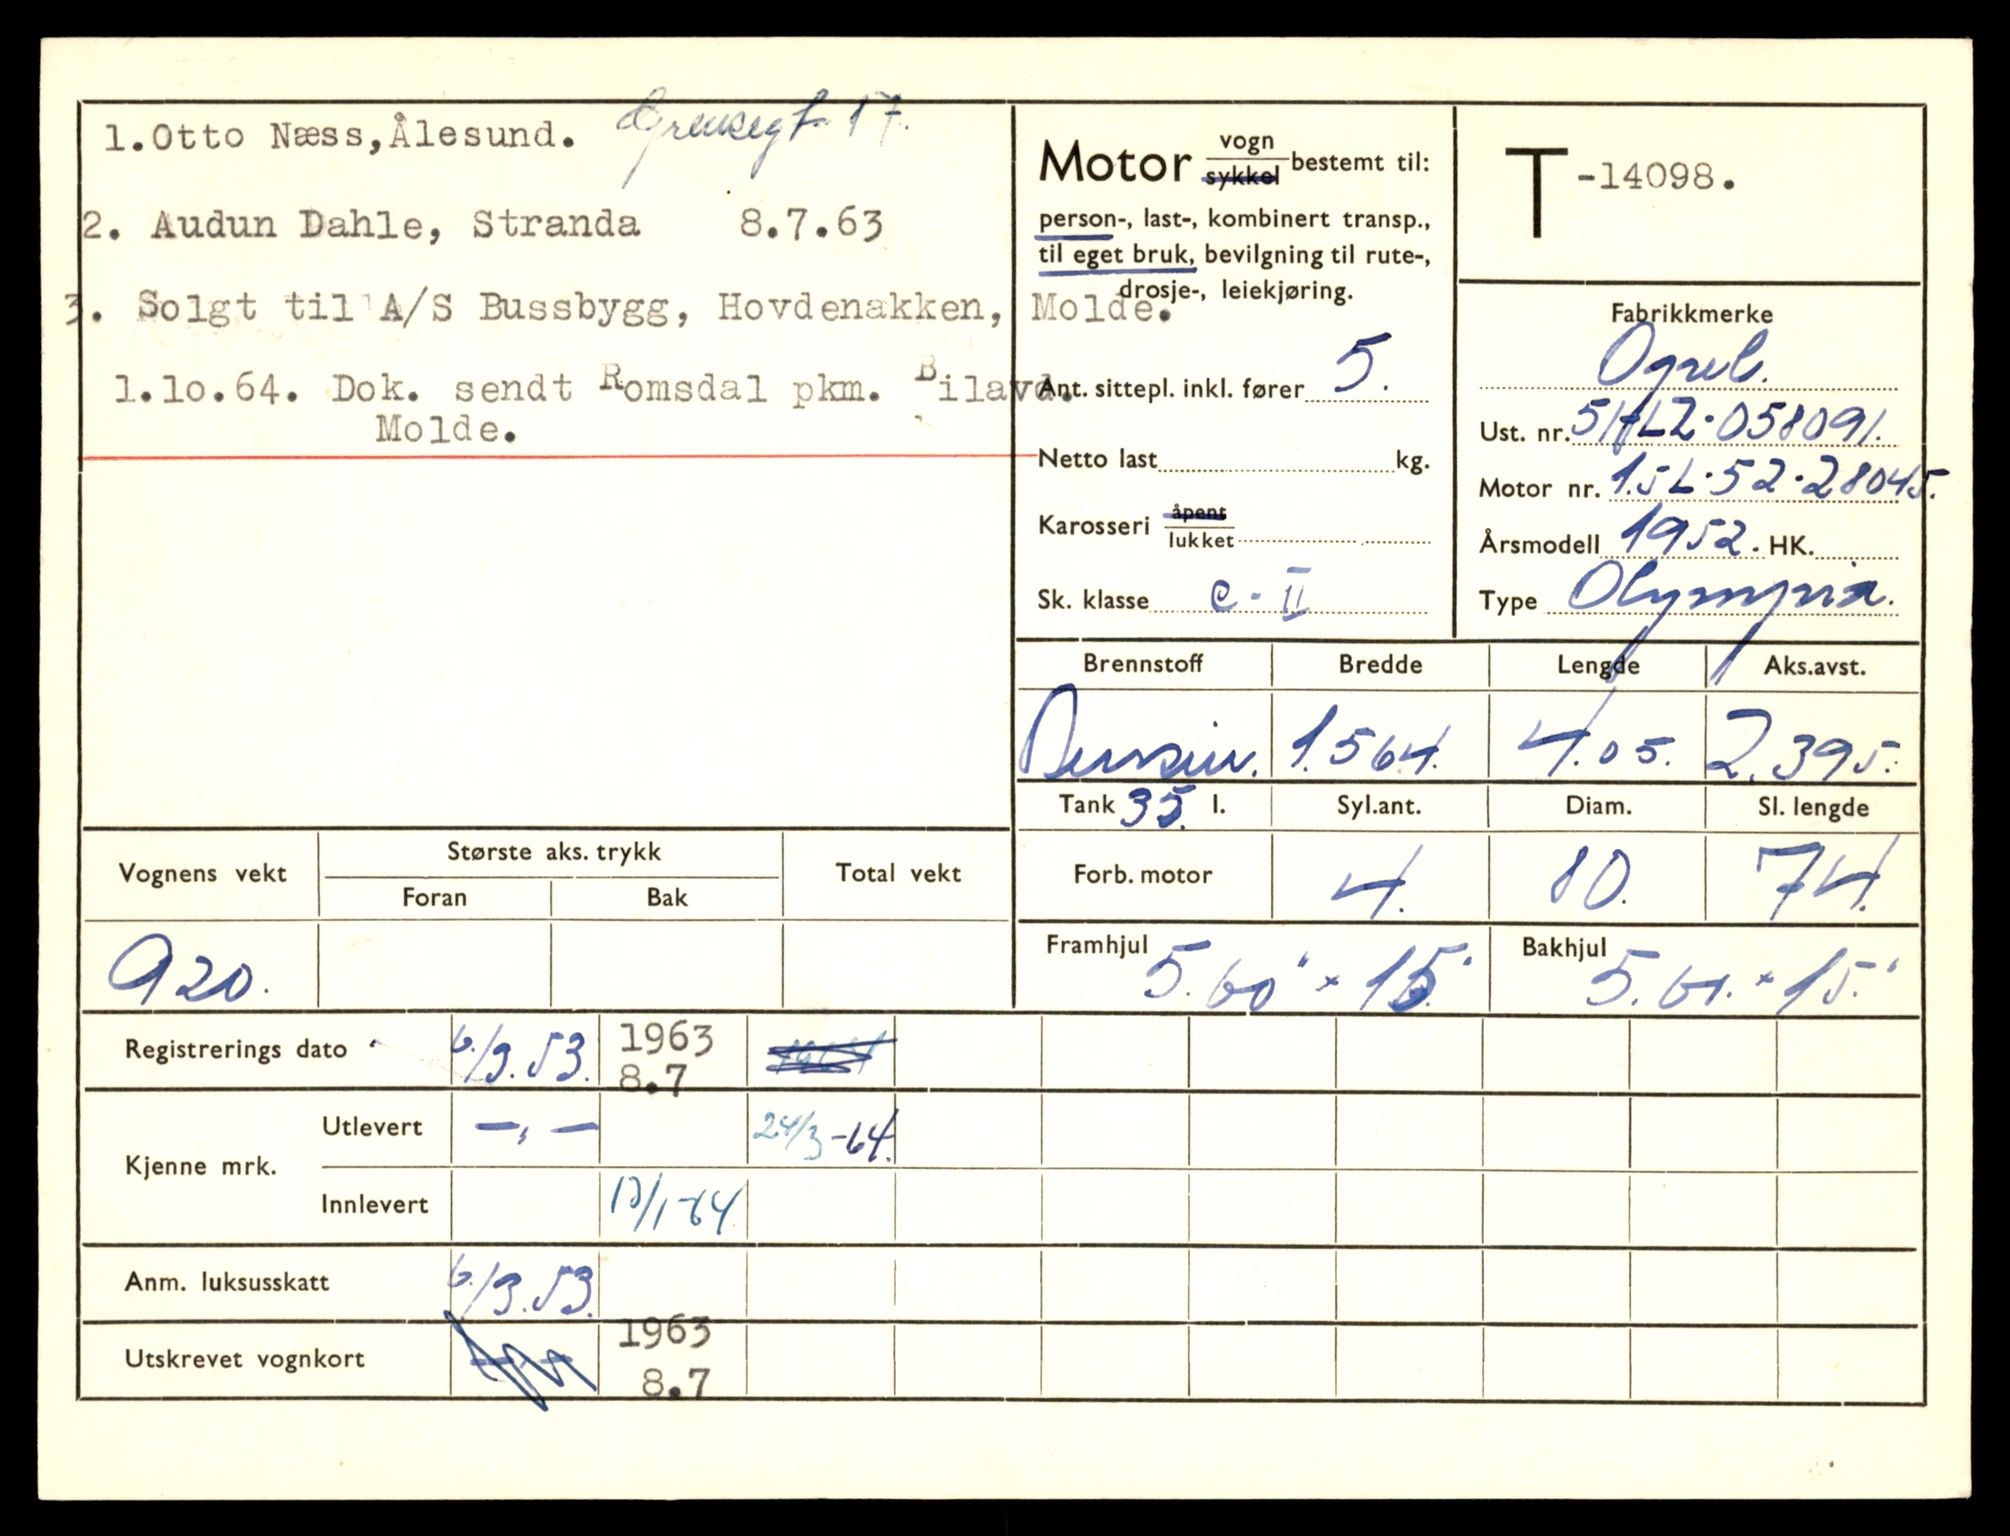 1.Otto Næss,Ålesund.
2. Audun Dahle, Stranda 8.7.63
3. Solgt til A/S Bussbygg, Hovdenakken, Molde.
1.1o.64. Dok. sendt Romsdal pkm. Bilavd.
Molde.
Motor vogn
sykkel bestemt til:
person-, last-, kombinert transp.,
til eget bruk, bevilgning til rute-,
drosje-, leiekjøring.
Ant. sittepl. inkl. fører 5.
Netto last kg.
Karosseri åpent
lukket
Sk. klasse c - II
T -14098.
Fabrikkmerke
Ust. nr. 058091.
Motor nr. 1.5 L. 52 - 28045.
Årsmodell 1952. HK.
Type Olympia.
Brennstoff Bredde Lengde Aks.avst.
Bensin. 1.564. 4.05. 2.395.
Tank 35. l. Syl.ant. Diam. Sl. lengde
Forb. motor 4. 80. 74.
Framhjul 5.60" x 15" Bakhjul 5.60. x 15."
Vognens vekt Største aks. trykk Total vekt
Foran Bak
920.
Registrerings dato 6/3.53. 1963
8.7
Kjenne mrk. Utlevert —„— 24/3-64.
Innlevert 13/1-64
Anm. luksusskatt 6/3.53.
Utskrevet vognkort 1963
8.7